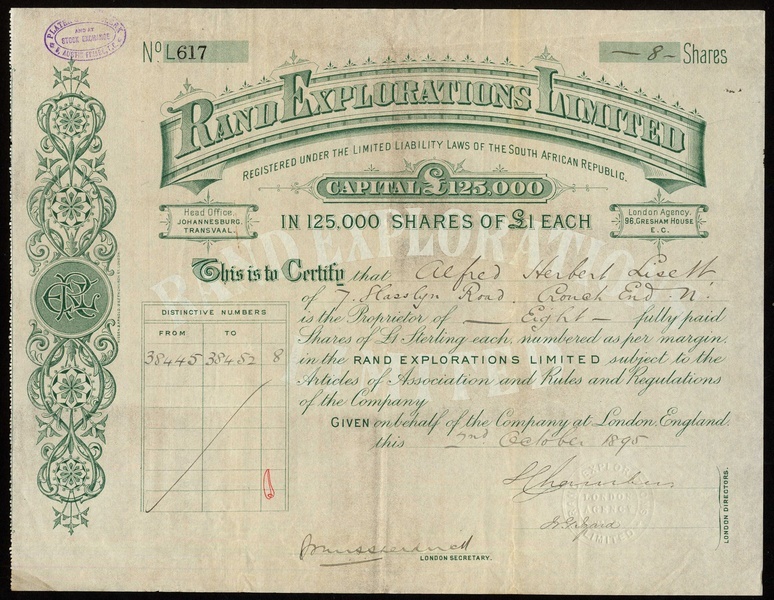 STOCK EXCHANGE
No L617
— 8 — Shares
RAND EXPLORATIONS LIMITED
REGISTERED UNDER THE LIMITED LIABILITY LAWS OF THE SOUTH AFRICAN REPUBLIC.
CAPITAL £125,000
Head Office.
JOHANNESBURG.
TRANSVAAL.
IN 125,000 SHARES OF £1 EACH
London Agency.
96, GRESHAM HOUSE
E.C.
RAND EXPLORATIONS LIMITED
This is to Certify that Alfred Herbert
of 7, Road, Crouch End. N.
is the Proprietor of — Eight — fully paid
Shares of £1 Sterling each, numbered as per margin,
in the RAND EXPLORATIONS LIMITED subject to the
Articles of Association and Rules and Regulations
of the Company
GIVEN on behalf of the Company at London, England.
this 2nd October 1895
DISTINCTIVE NUMBERS
FROM TO
38445 38452 8
LONDON DIRECTORS.
LONDON SECRETARY.